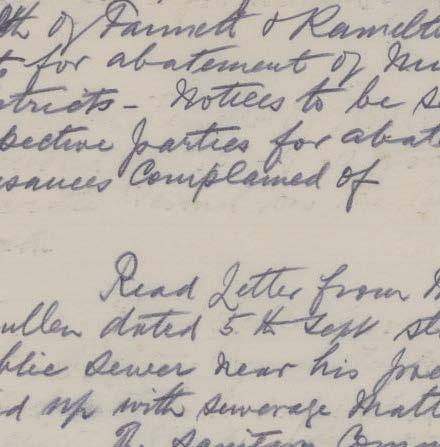 th of Fannett & Ramelto
for abatement of Nui
stricts - Notices to be s
pective parties for abate
isances Complained of
Read Letter from M
ullen dated 5th Sept sta
blic sewer near his pre
ed up with sewerage matt
Sanitary Com